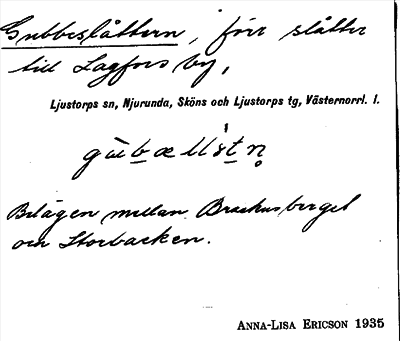 Gubbeslåttern, förr slåtter
till Lagfors by,
Ljustorps sn, Njurunda, Sköns och Ljustorps tg, Västernorrl. l.
Belägen mellan berget
och Storbacken.
ANNA-LISA ERICSON 1935